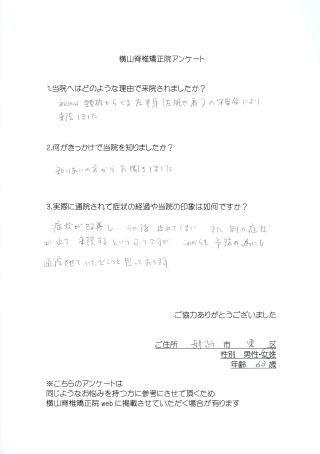 横山脊椎矯正院アンケート
1.当院へはどのような理由で来院されましたか?
初めは 頸椎からくる左半身(左腕や肩)の不具合により
来院しました
2.何がきっかけで当院を知りましたか?
知りあいの方から お聞きしました
3.実際に通院されて症状の経過や当院の印象は如何ですか?
症状が改善し その後
また 別の症状
が出て 来院する というようですが これからも 予防の為にも
通院させていただこうと思っております
ご協力ありがとうございました
ご住所 市 東 区
性別 男性・女性
年齢 63 歳
※こちらのアンケートは
同じようなお悩みを持つ方に参考にさせて頂くため
横山脊椎矯正院 web に掲載させていただく場合が有ります